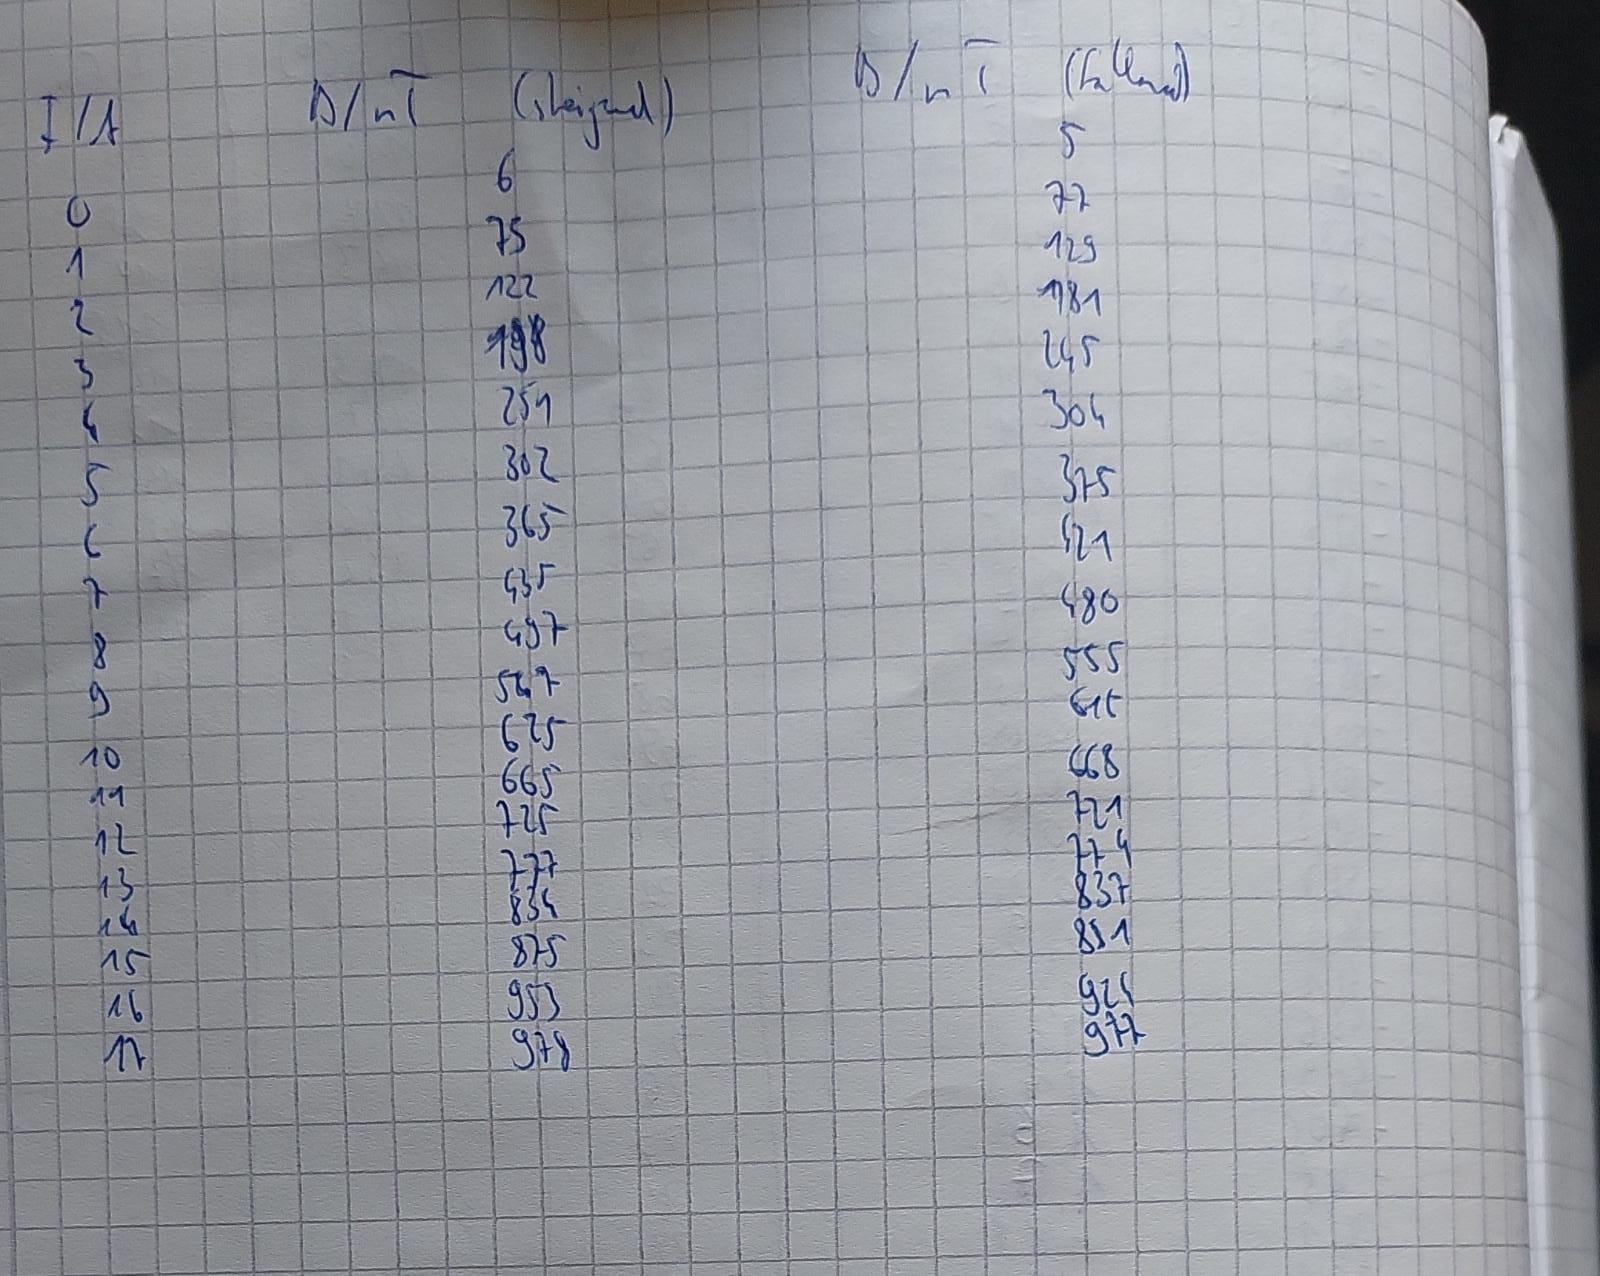 I/A B/mT (steigend) B/mT (fallend)
0 6 5
1 75 77
2 122 129
3 198 181
4 251 245
5 302 304
6 365 375
7 435 421
8 497 480
9 547 555
10 625 615
11 665 668
12 725 721
13 777 774
14 834 837
15 875 891
16 953 924
17 978 977